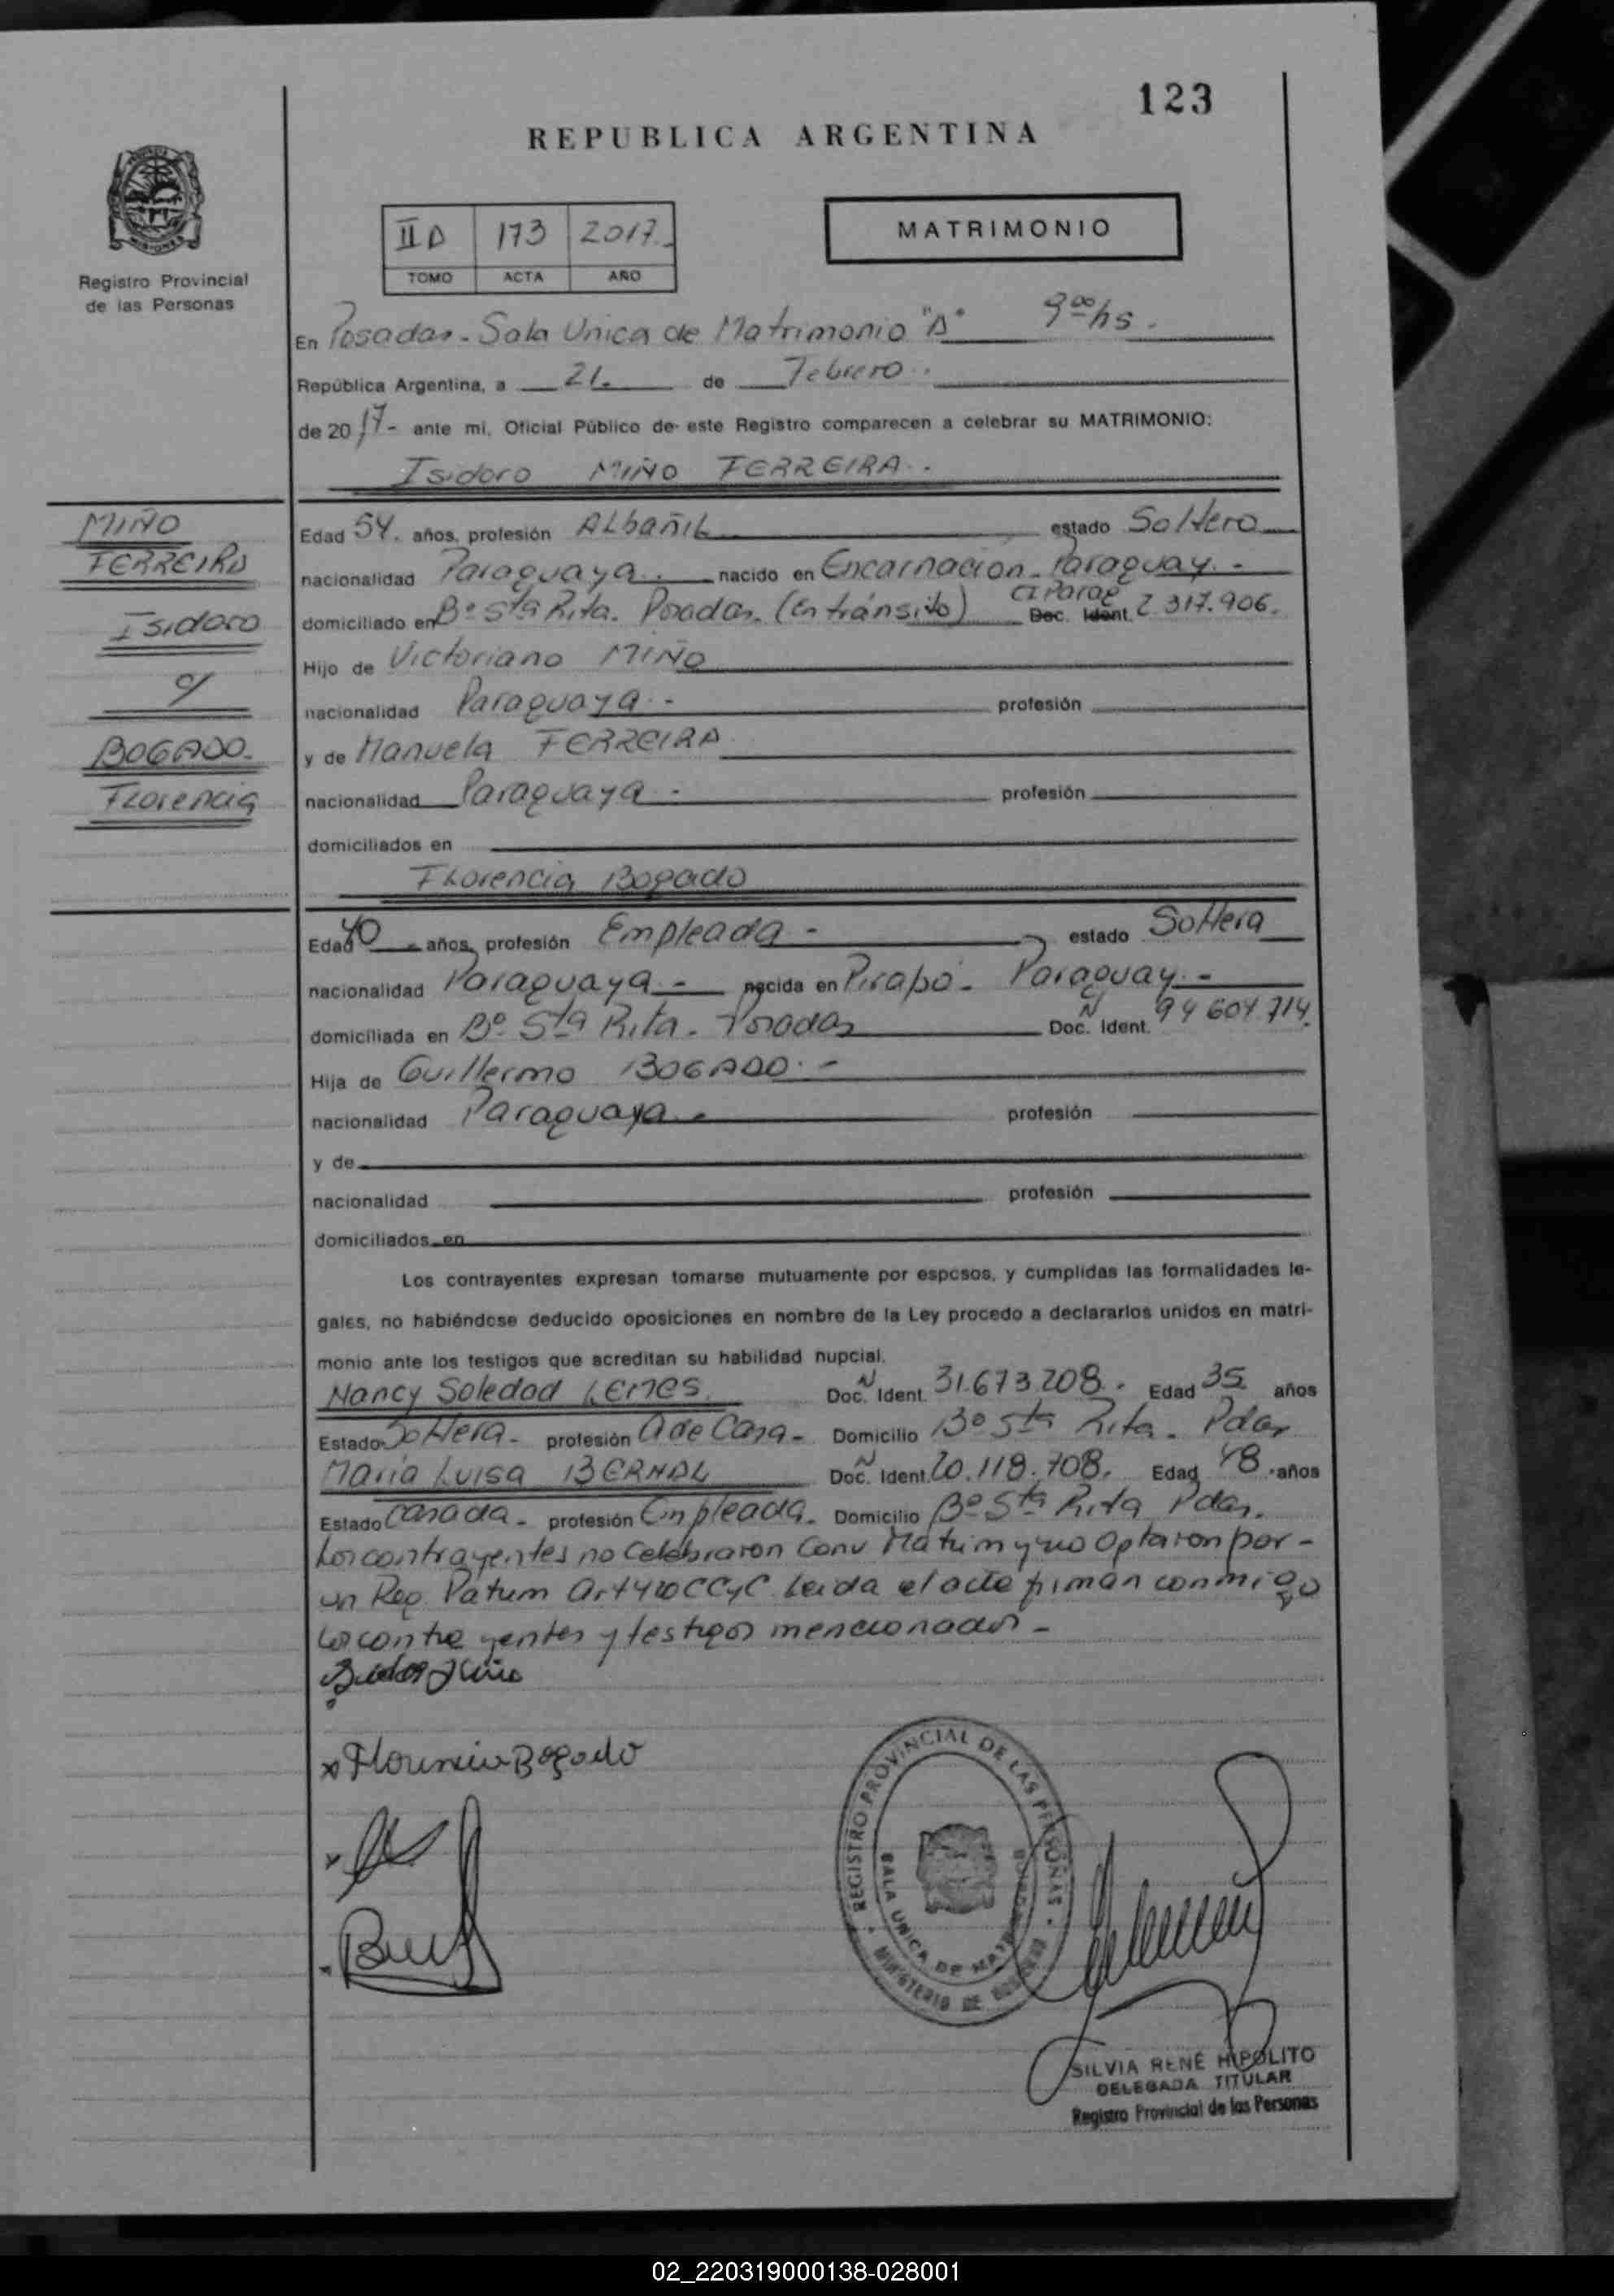 123
REPUBLICA ARGENTINA
II D 173 2017.-
TOMO ACTA AÑO
MATRIMONIO
Registro Provincial
de las Personas
En Posadas - Sala Unica de Matrimonio "A" 9 00 hs.
República Argentina, a 21. de Febrero.
de 2017- ante mi, Oficial Público de este Registro comparecen a celebrar su MATRIMONIO:
Isidoro MIÑO FERREIRA.
MIÑO
FERREIRA
Isidoro
c/
BOGADO.
Florencia
Edad 54. años, profesión Albañil estado Soltero
nacionalidad Paraguaya. nacido en Encarnación - Paraguay. -
domiciliado en Bº Sta Rita. Posadas. (En tránsito) CI Parag Doc. Ident. 2.317.906.
Hijo de Victoriano MIÑO
nacionalidad Paraguaya. - profesión
y de Manuela FERREIRA
nacionalidad Paraguaya - profesión
domiciliados en
Florencia Bogado
Edad 40 años, profesión Empleada - estado Soltera
nacionalidad Paraguaya. - nacida en Pirapó - Paraguay. -
domiciliada en Bº Sta Rita - Posadas Doc. N Ident. 94 604 714.
Hija de Guillermo BOGADO. -
nacionalidad Paraguaya - profesión
y de
nacionalidad profesión
domiciliados en
Los contrayentes expresan tomarse mutuamente por esposos, y cumplidas las formalidades le-
gales, no habiéndose deducido oposiciones en nombre de la Ley procedo a declararlos unidos en matri-
monio ante los testigos que acreditan su habilidad nupcial.
Nancy Soledad LEMES Doc. N Ident. 31.673.208. Edad 35 años
Estado Soltera - profesión A de Casa - Domicilio Bº Sta Rita - Pdas
María Luisa BERNAL Doc. N Ident. 20.118.708. Edad 48 años
Estado Casada - profesión Empleada. Domicilio Bº Sta Rita Pdas.
Los contrayentes no Celebraron Conv Matrim y no Optaron por -
un Reg. Patrim Art 420 CCyC Leida el acta firman conmigo
los contrayentes y testigos mencionados -
Isidoro Miño
x Florencia Bogado
REGISTRO PROVINCIAL DE LAS PERSONAS
SALA UNICA DE MATRIMONIO
MINISTERIO DE GOBIERNO
SILVIA RENÉ HIPOLITO
DELEGADA TITULAR
Registro Provincial de las Personas
02_220319000138-028001